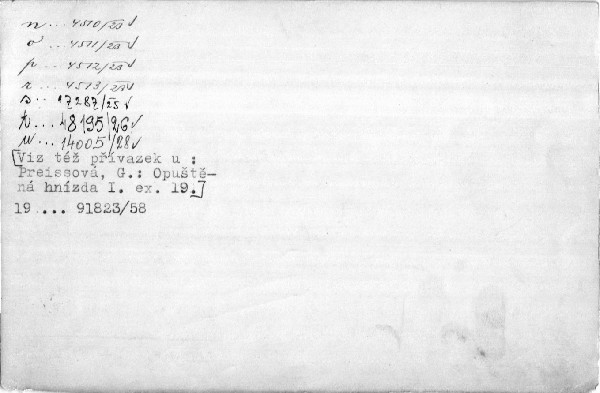 n ... 4510/23 √
o ... 4511/23 √
p ... 4512/23 √
r ... 4513/23 √
s .. 17287/25 √
t ... 48195/26 √
u ... 14005/28 √
[Viz též přívazek u :
Preissová, G.: Opuště-
ná hnízda I. ex. 19.]
19 ... 91823/58